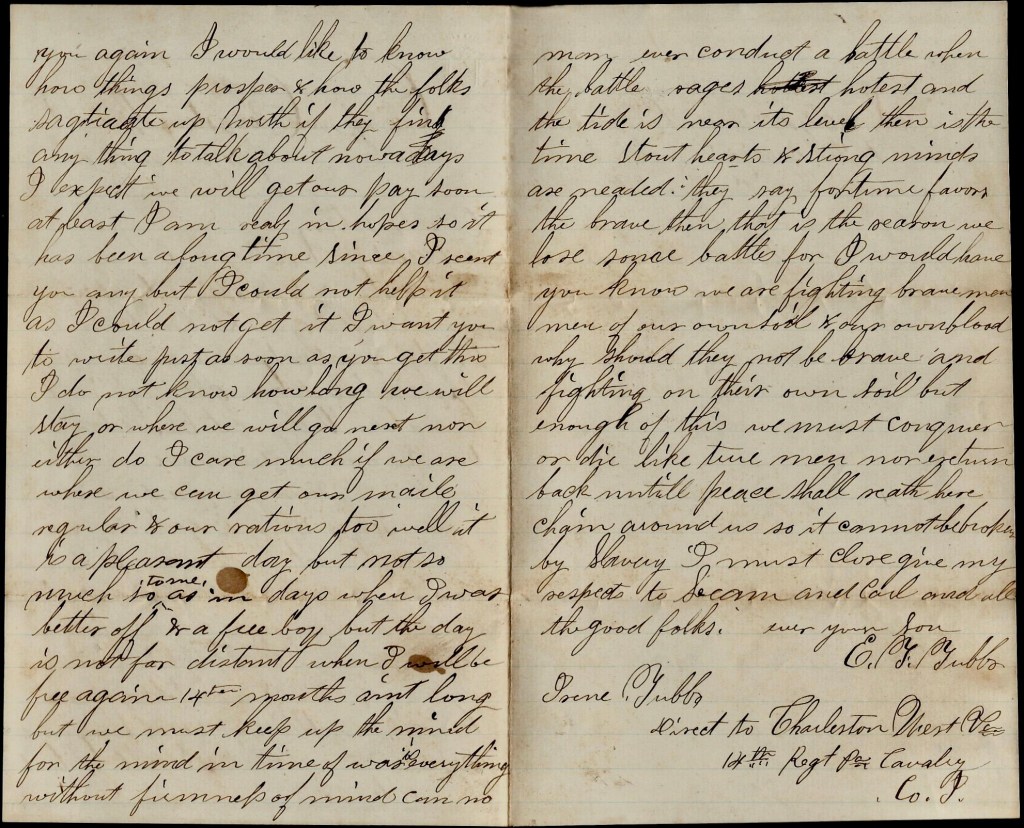 you again I would like to know
how things prosper & how the folks
up North if they find
any thing to talk about nowadays
I expect we will get our pay soon
at least I am realy in hopes so it
has been a long time since I scent
you any but I could not help it
as I could not get it I want you
to write just as soon as you get this
I do not know how long we will
stay or where we will go next nor
either do I care much if we are
where we can get our mails
regular & our rations too well it
is a pleasant day but not so
much so to me, as in days when I was
better off & a free boy but the day
is not far distant when I will be
free again 14 months aint long
but we must keep up the mind
for the mind in time of war is everything
without firmness of mind can no
man ever conduct a battle when
the battle rages hotest and
the tide is near its level then is the
time stout hearts & strong minds
are needed. they say fortune favors
the brave then that is the reason we
lose some battles for I would have
you know we are fighting brave men
men of our own soil & our own blood
why should they not be brave and
fighting on their own soil but
enough of this we must conquer
or die like true men nor return
back untill peace shall reath here
chain around us so it cannot be broken
by Slavery I must close give my
respects to and Carl and all
the good folks. ever your Son
E. F. Tubbs
Irene Tubbs
Direct to Charleston West Va
14th Regt Pa Cavalry
Co. I.